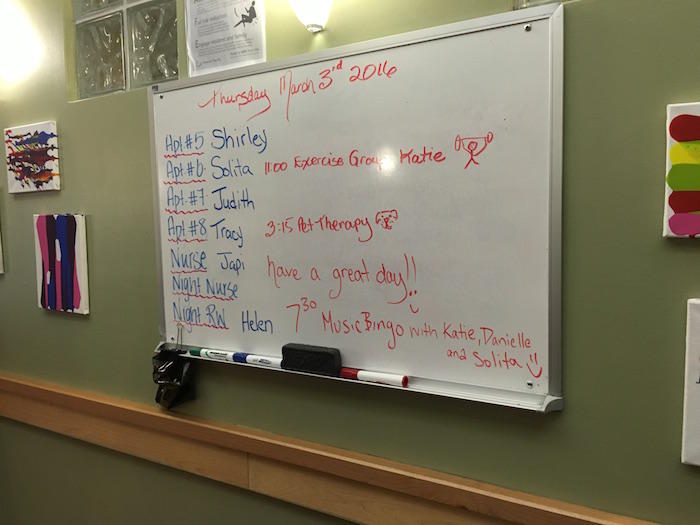 Thursday March 3rd 2016
Apt #5 Shirley
Apt #6 Solita 11:00 Exercise Group Katie
Apt #7 Judith
Apt #8 Tracy 3:15 Pet Therapy
Nurse Japi have a great day!!
Night Nurse
Night RW Helen 7 30 Music Bingo with Katie, Danielle
and Solita